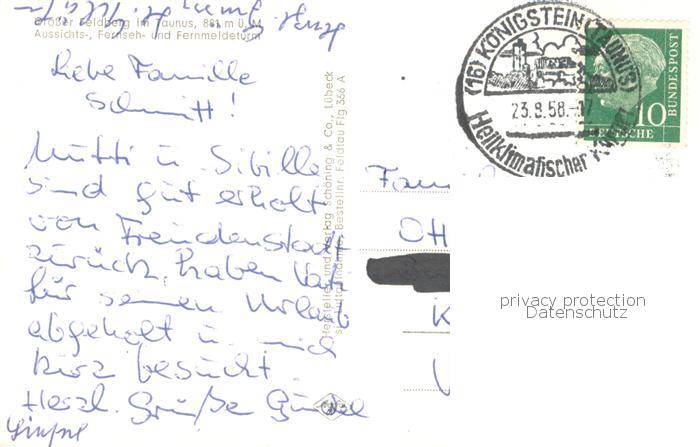 Großer Feldberg im Taunus, 881 m ü. M.
Aussichts-, Fernseh- und Fernmeldeturm
Liebe Familie
Schmitt!
Mutti u. Sibille
sind gut erholt
von Freudenstadt
zurück, haben Vati
für seinen Urlaub
abgeholt u. mich
kurz besucht.
Herzl. Grüße Gündel
Hersteller und Verlag Schöning & Co., Lübeck
Bestellnr. Feldtau Flg 366 A
(16) KÖNIGSTEIN (TAUNUS)
23.8.58.-17
Heilklimatischer
10
DEUTSCHE
BUNDESPOST
Fam
Ott
K
privacy protection
Datenschutz